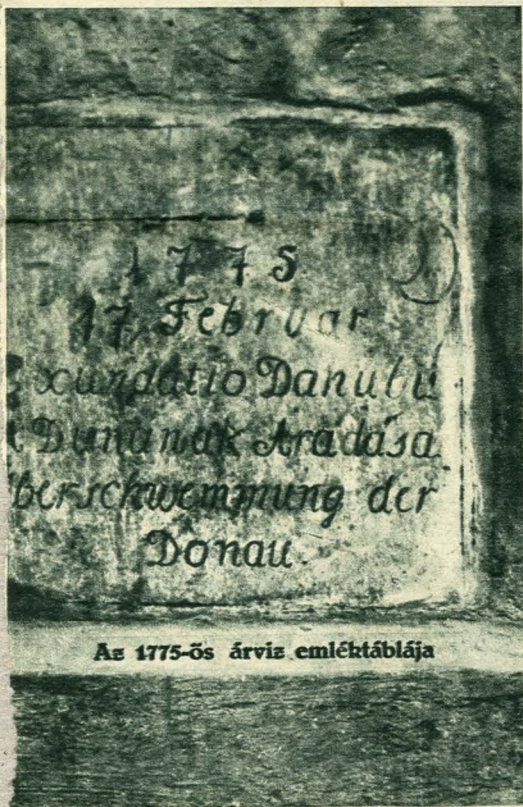 1775
17 Februar
Exundatio Danubii
A Dunának Áradása
Überschwemmung der
Donau.
Az 1775-ös árviz emléktáblája